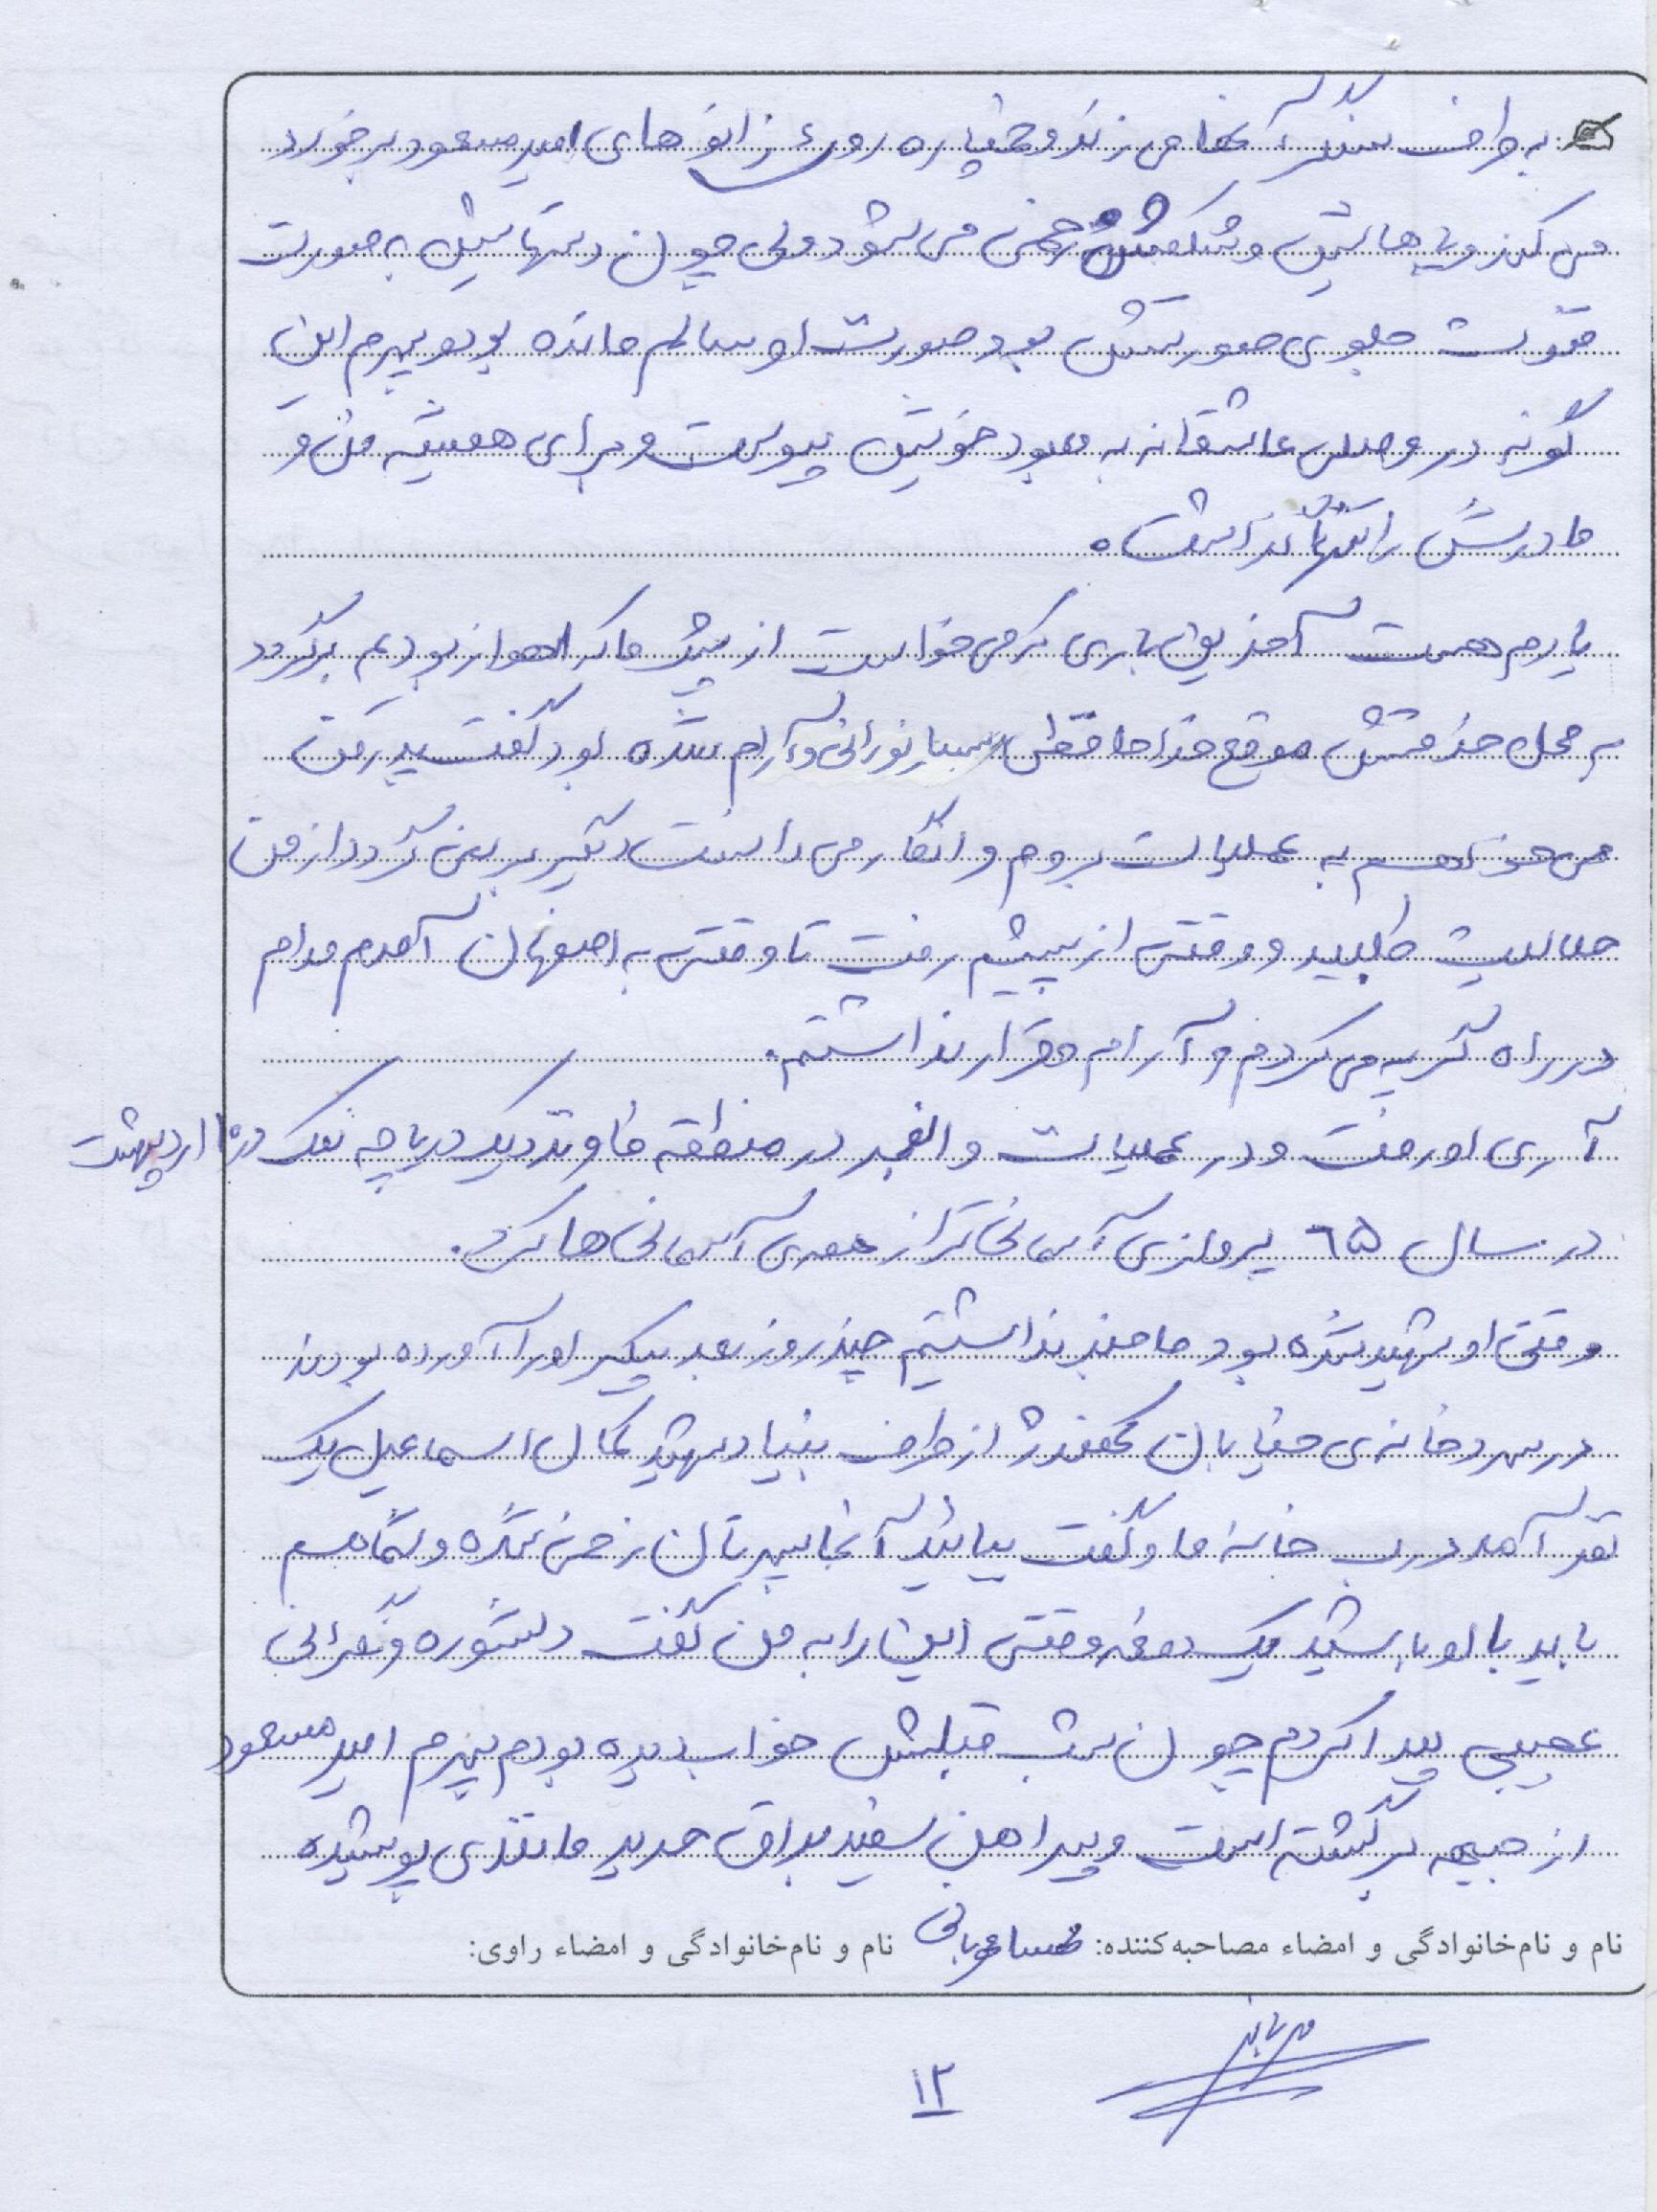 به طرف سنگر آنها می زند و خمپاره روی زانوهای امیر مسعود برخورد
می کند و پاهایش و شکمش زخمی می شود ولی چون دستهایش به صورت
قنوت جلوی صورتش بود صورت او سالم مانده بود و پسرم این
گونه در وصلی عاشقانه به معبود خویش پیوست و برای همیشه من و
مادرش را تنها گذاشت.
یادم هست آخرین باری که می خواست از پیش ما که اهواز بودیم برگردد
به محل خدمتش موقع خداحافظی بسیار نورانی و آرام شده بود گفت پدر من
می خواهم به عملیات بروم و انگار می دانست دیگر بر نمی گردد از من
حلالیت طلبید و وقتی از پیشم رفت تا وقتی به اصفهان آمدم مدام
در راه گریه می کردم و آرام و قرار نداشتم.
آری او رفت و در عملیات والفجر در منطقه فاو نزدیک دریاچه نمک در ۱۰ اردیبهشت
در سال ۶۵ پروازی آسمانی تر از همه ی آسمانی ها کرد.
وقتی او شهید شده بود ما خبر نداشتیم چند روز بعد پیکر او را آورده بودند
در سردخانه ی خیابان کهندژ از طرف بنیاد شهید کمال اسماعیل یک
نفر آمد درب خانه ما و گفت بیائید آنجا پسرتان زخمی شده و شما هم
باید با او باشید یک دفعه وقتی این را به من گفت دلشوره و نگرانی
عجیبی پیدا کردم چون شب قبلش خواب دیده بودم پسرم امیر مسعود
از جبهه برگشته است و پیراهن سفید براق حریر مانندی پوشیده
نام و نام‌خانوادگی و امضاء مصاحبه‌کننده: نام و نام‌خانوادگی و امضاء راوی:
۱۲